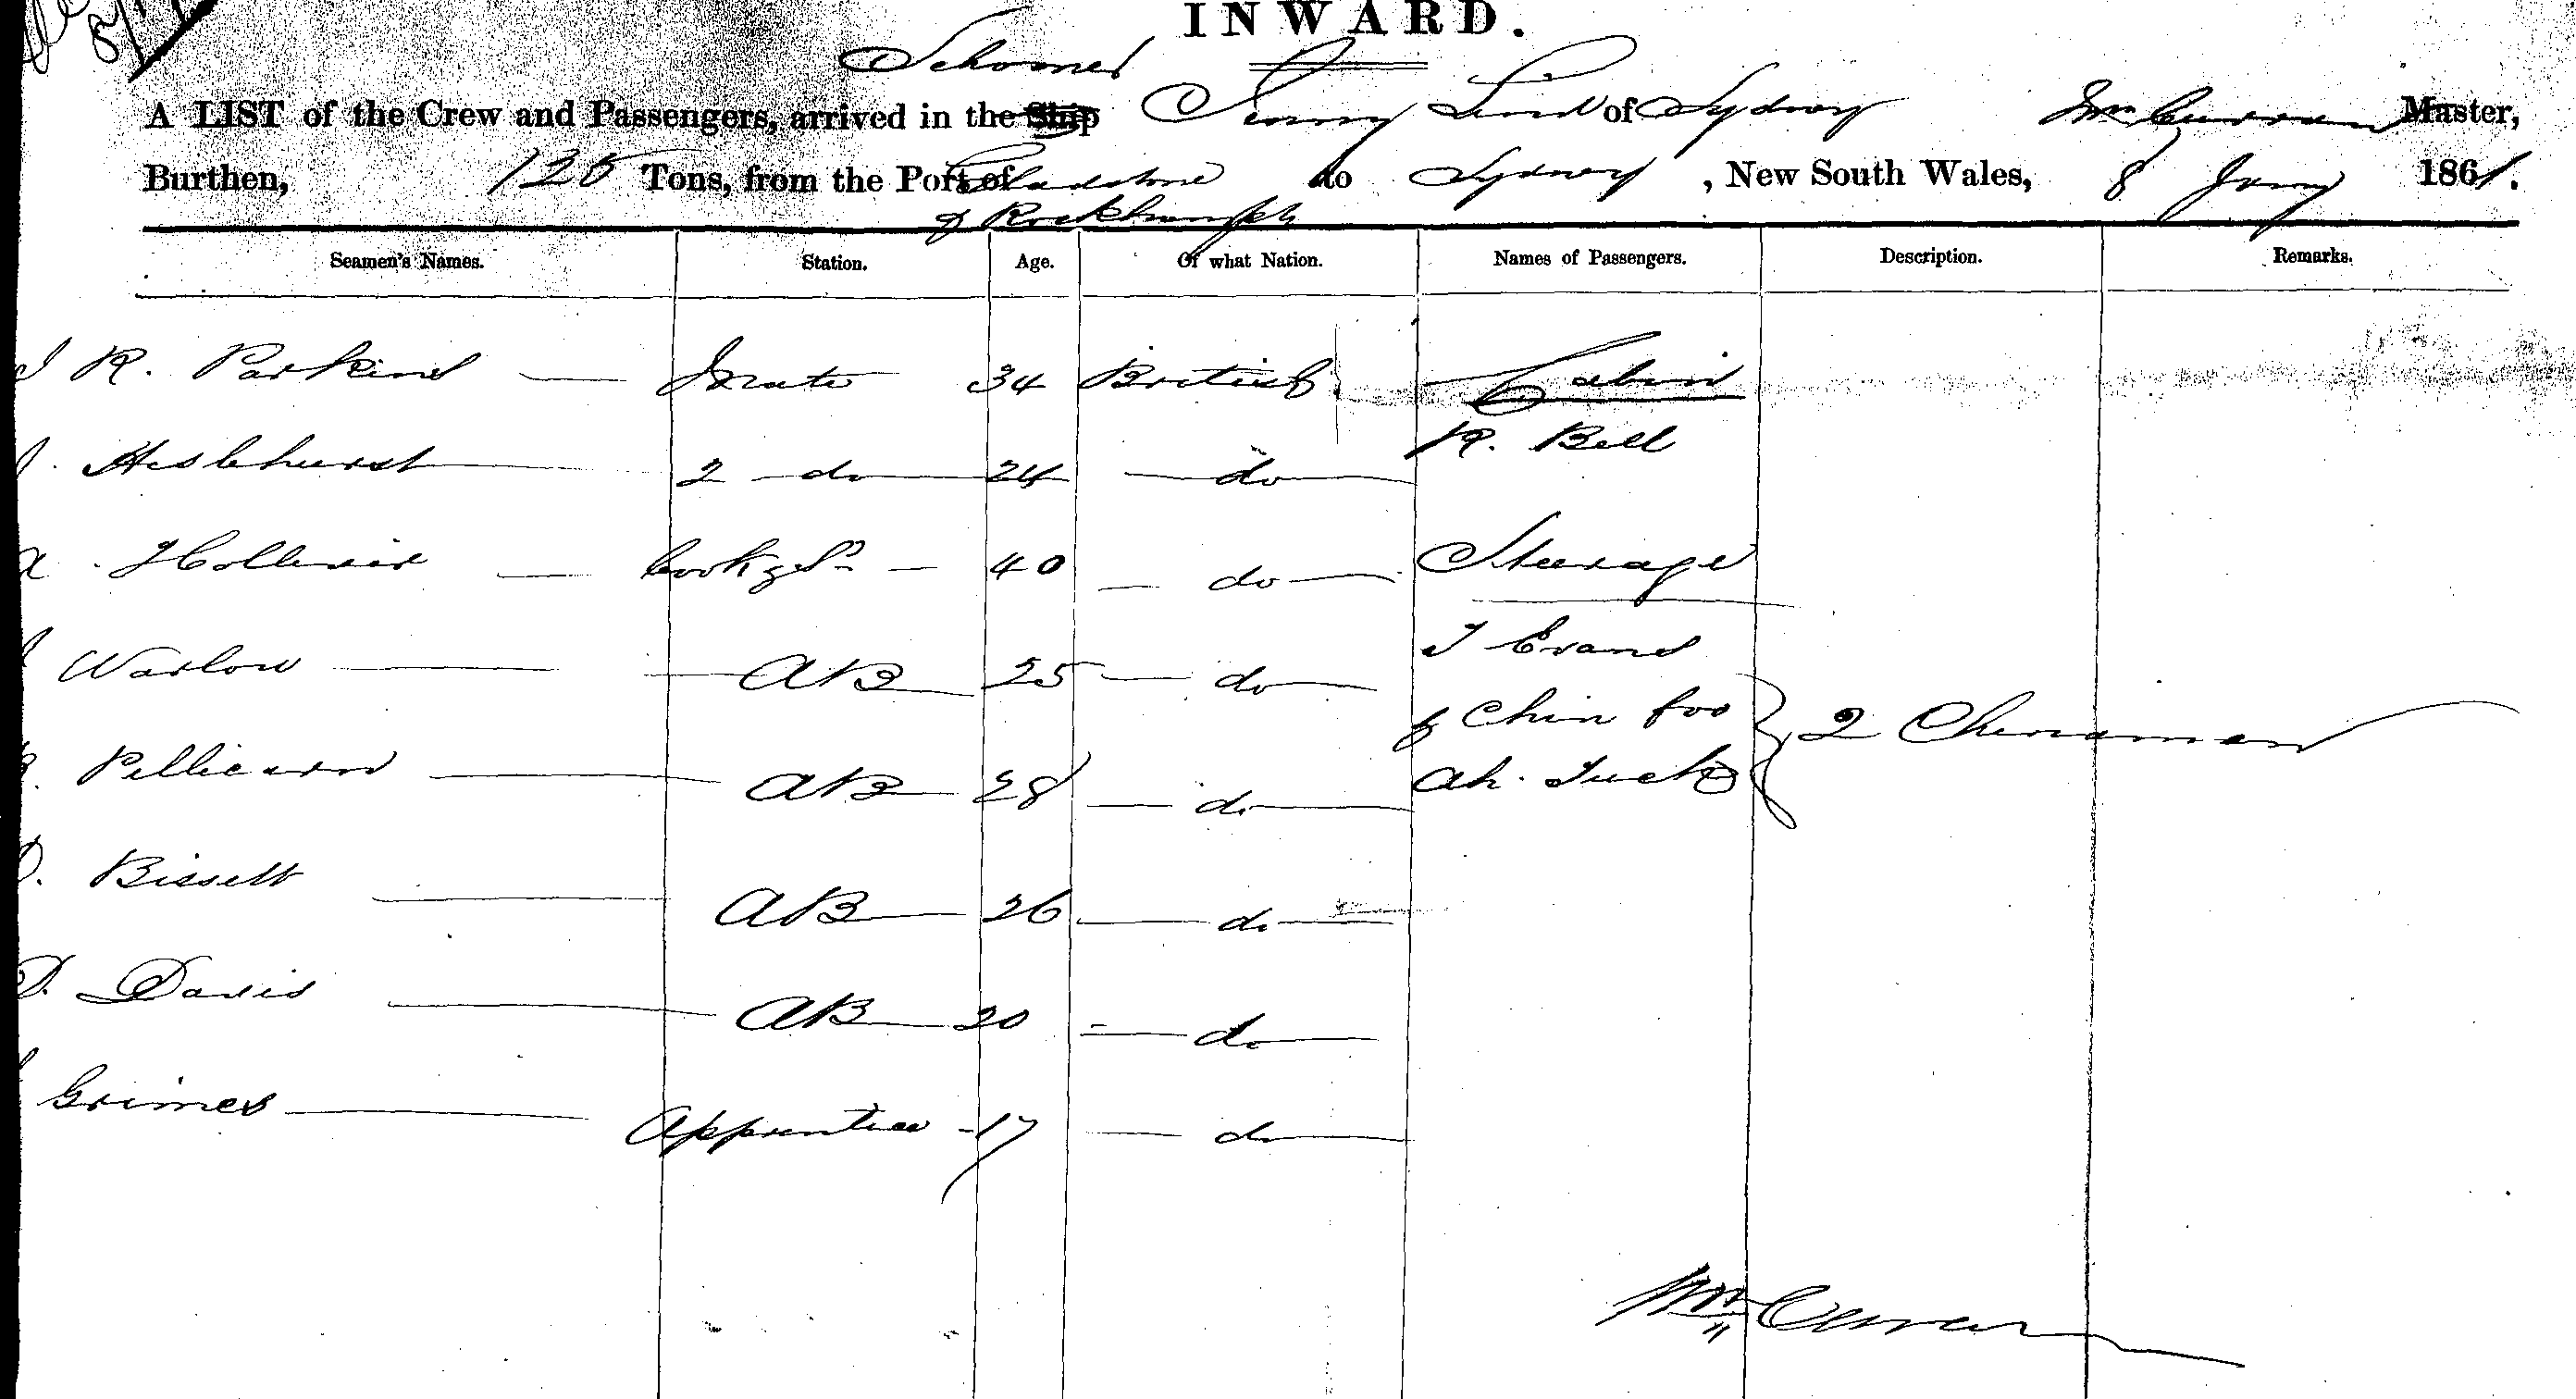 INWARD.
Schooner
A LIST of the Crew and Passengers, arrived in the Ship Jenny Lind of Sydney Wm Curran Master,
Burthen, 125 Tons, from the Port of Gladstone to Sydney, New South Wales, 8 Jany 1861.
& Rockhampton
Seamen's Names. Station. Age. Of what Nation. Names of Passengers. Description. Remarks.
J R. Parkins Mate 34 British Cabin
R. Bell
2 do 24 do
A. Cook & St 40 do Steerage
Warlow AB 25 do J Evans
Chin foo 2 Chinamen
AB 28 do Ah. Tuck
D. Bissett AB 26 do
D. Davis AB 20 do
Grimes Apprentice 17 do
Wm Curran